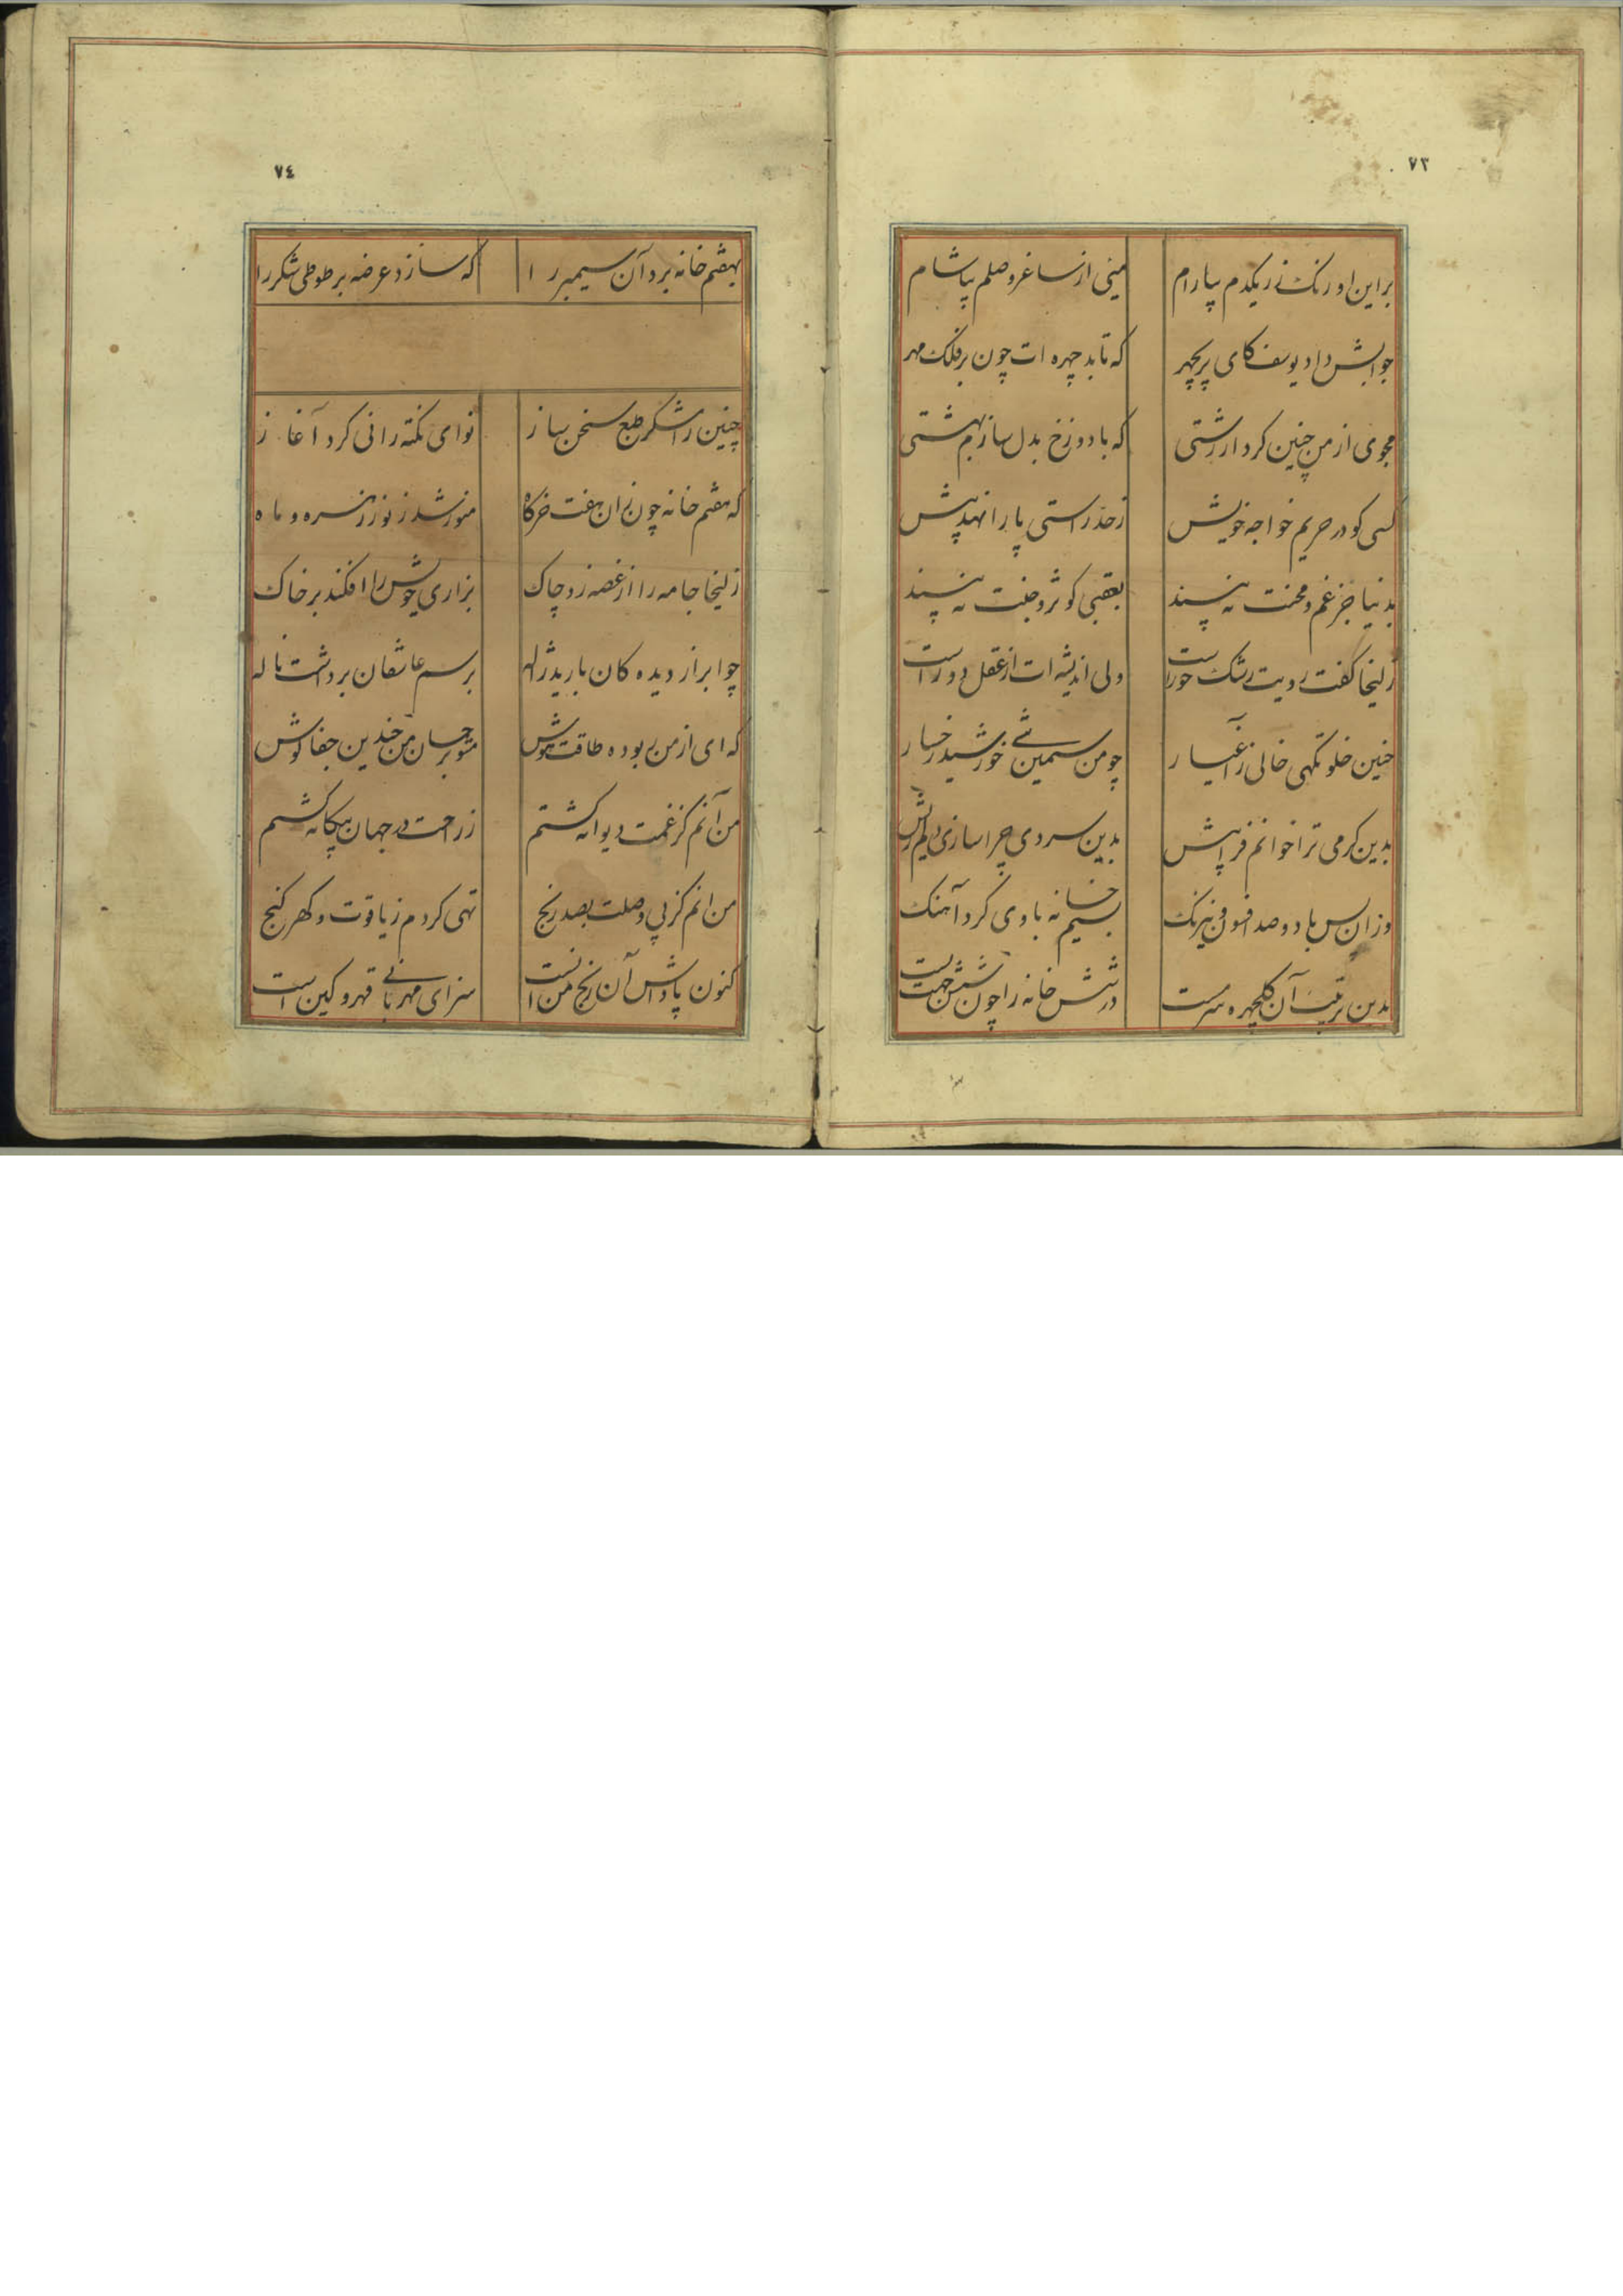 ٧٣
براین اورنک زر یکدم بیارام    میئی از ساغر وصلم بیاشام
جوابش داد یوسف کای پریچهر    که تابد چهره ات چون بر فلک مهر
مجوی از من چنین کردار زشتی    که با دوزخ بدل سازم بهشتی
کسی کو در حریم خواجه خویش    ز حد راستی پا را نهد پیش
بدنیا جز غم و محنت نه بیند    بعقبی کوثر و جنت نه بیند
زلیخا کفت رویت رشک حوراست    ولی اندیشه ات از عقل دور است
چنین خلوتکهی خالی ز اغیار    چو من سیمین تنی خورشید رخسار
بدین کرمی ترا خوانم فرا پیش    بدین سردی چرا سازی دلم ریش
وزان پس با دو صد افسون و نیرنک    بسیم خانه با وی کرد آهنک
بدین ترتیب آن کلچهره سرمست    در شش خانه را چون شش جهت بست
٧٤
بهفتم خانه برد آن سیمبر را    که سازد عرضه بر طوطی شکر را
چنین رامشکر طبع سخن ساز    نوای نکته رانی کرد آغاز
که هفتم خانه چون زان هفت خرکاه    منور شد ز نور زهره و ماه
زلیخا جامه را از غصه زد چاک    بزاری خویش را افکند بر خاک
چو ابر از دیده کان بارید ژاله    برسم عاشقان برداشت ناله
که ای از من ربوده طاقت و هوش    مشو بر جان من چندین جفا کوش
من آنم کز غمت دیوانه کشتم    ز راحت در جهان بیکانه کشتم
من انم کز پی وصلت بصد رنج    تهی کردم ز یاقوت و کهر کنج
کنون پاداش آن رنج من انست    سزای مهربانی قهر و کین است